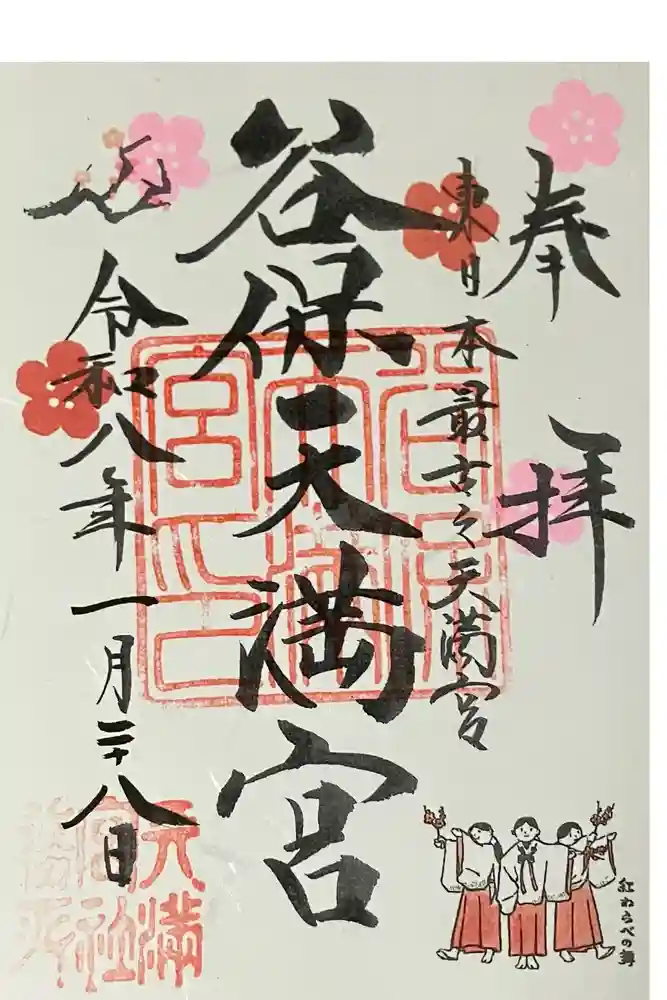 奉拝
東日本最古之天満宮
谷保天満宮
令和八年一月二十八日
天満
宮社
務所
紅わらべの舞